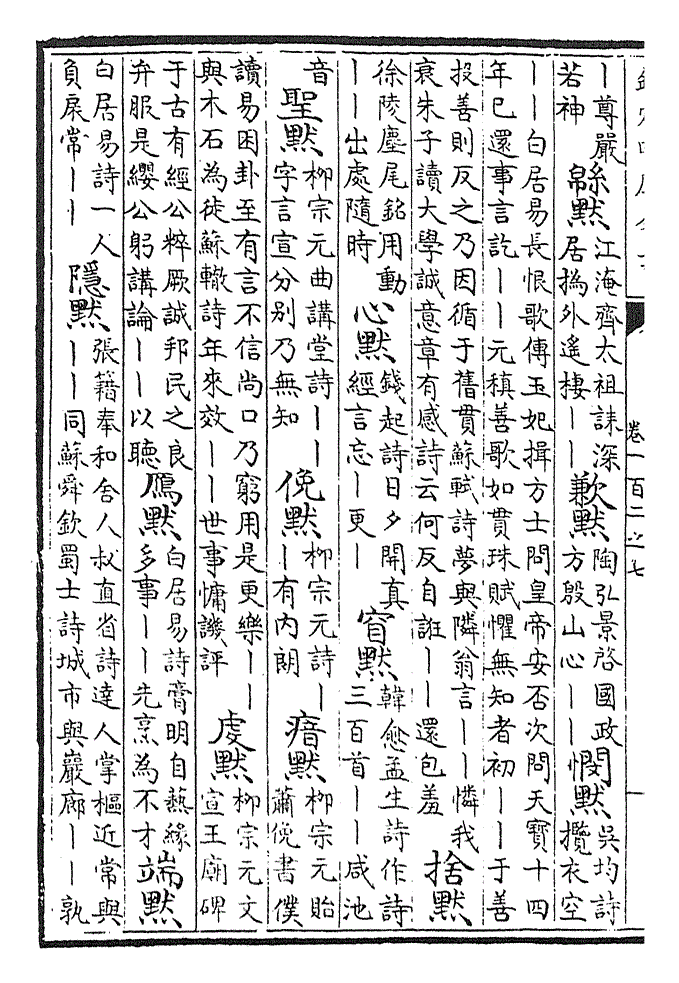 卷一百二之七
｜尊嚴
若神
緜默
江淹齊太祖誄深
居撝外遙棲｜｜
歉默
陶弘景啓國政
方殷山心｜｜
憫默
吳均詩
攬衣空
｜｜白居易長恨歌傳玉妃揖方士問皇帝安否次問天寶十四
年已還事言訖｜｜元稹善歌如貫珠賦懼無知者初｜｜于善
投善則反之乃因循于舊貫蘇軾詩夢與隣翁言｜｜憐我
衰朱子讀大學誠意章有感詩云何反自誑｜｜還包羞
捨默
徐陵麈尾銘用動
｜｜出處隨時
心默
錢起詩日夕開真
經言忘｜更｜
窅默
韓愈孟生詩作詩
三百首｜｜咸池
音
聖默
柳宗元曲講堂詩｜｜
字言宣分别乃無知
俛默
柳宗元詩｜
｜有内朗
瘖默
柳宗元貽
蕭俛書僕
讀易困卦至有言不信尚口乃窮用是更樂｜｜
與木石為徒蘇轍詩年來效｜｜世事慵譏評
虔默
柳宗元文
宣王廟碑
于古有經公粹厥誠邦民之良
弁服是纓公躬講論｜｜以聽
鴈默
白居易詩膏明自爇緣
多事｜｜先烹為不才
端默
白居易詩一人
負扆常｜｜
隱默
張籍奉和舍人叔直省詩達人掌樞近常與
｜｜同蘇舜欽蜀士詩城市與巖廊｜｜孰